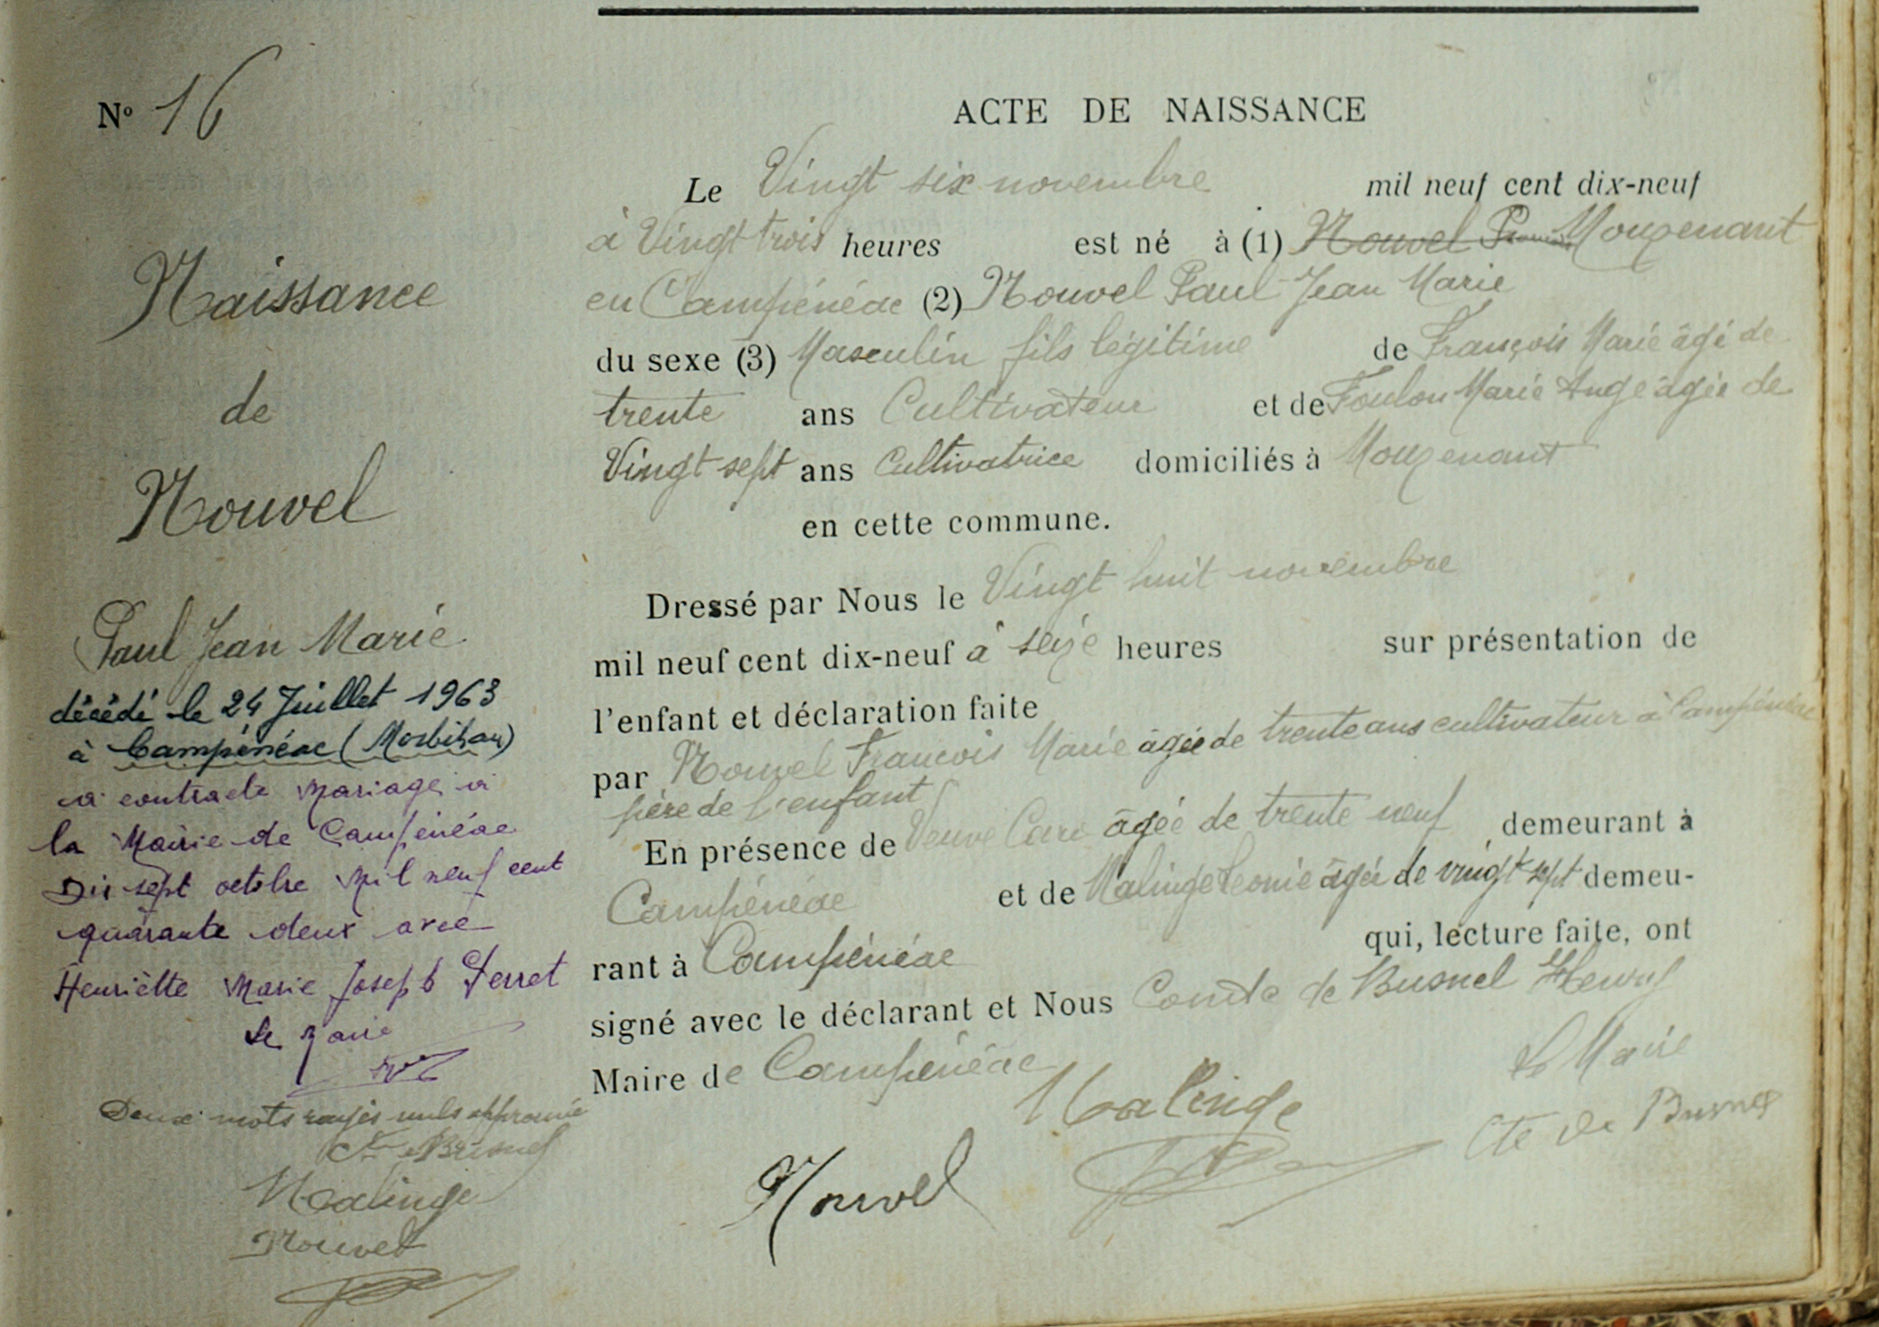 N° 16
Naissance
de
Nouvel
Paul Jean Marie
décédé le 24 Juillet 1963
à Campénéac (Morbihan)
a contracté Mariage à
la Mairie de Campénéac
Dix sept octobre Mil neuf cent
quarante deux avec
Henriette Marie Joseph Perret
Le Maire
Deux mots rayés nuls approuvé
Cte de Busnel
Malinge
Nouvel
ACTE DE NAISSANCE
Le Vingt six novembre mil neuf cent dix-neuf
à Vingt trois heures est né à (1) Nouvel Mouzenant
en Campénéac (2) Nouvel Paul Jean Marie
du sexe (3) Masculin fils légitime de François Marie âgé de
trente ans Cultivateur et de Foulon Marie Ange âgée de
Vingt sept ans Cultivatrice domiciliés à Mouzenant
en cette commune.
Dressé par Nous le Vingt huit novembre
mil neuf cent dix-neuf à seize heures sur présentation de
l'enfant et déclaration faite
par Nouvel François Marie âgée de trente ans cultivateur à Campénéac
père de l'enfant
En présence de Veuve Caro âgée de trente neuf demeurant à
Campénéac et de Malinge Léonie âgée de vingt sept demeu-
rant à Campénéac qui, lecture faite, ont
signé avec le déclarant et Nous Comte de Busnel
Maire de Campénéac
Malinge
Le Maire
Cte de Busnel
Nouvel